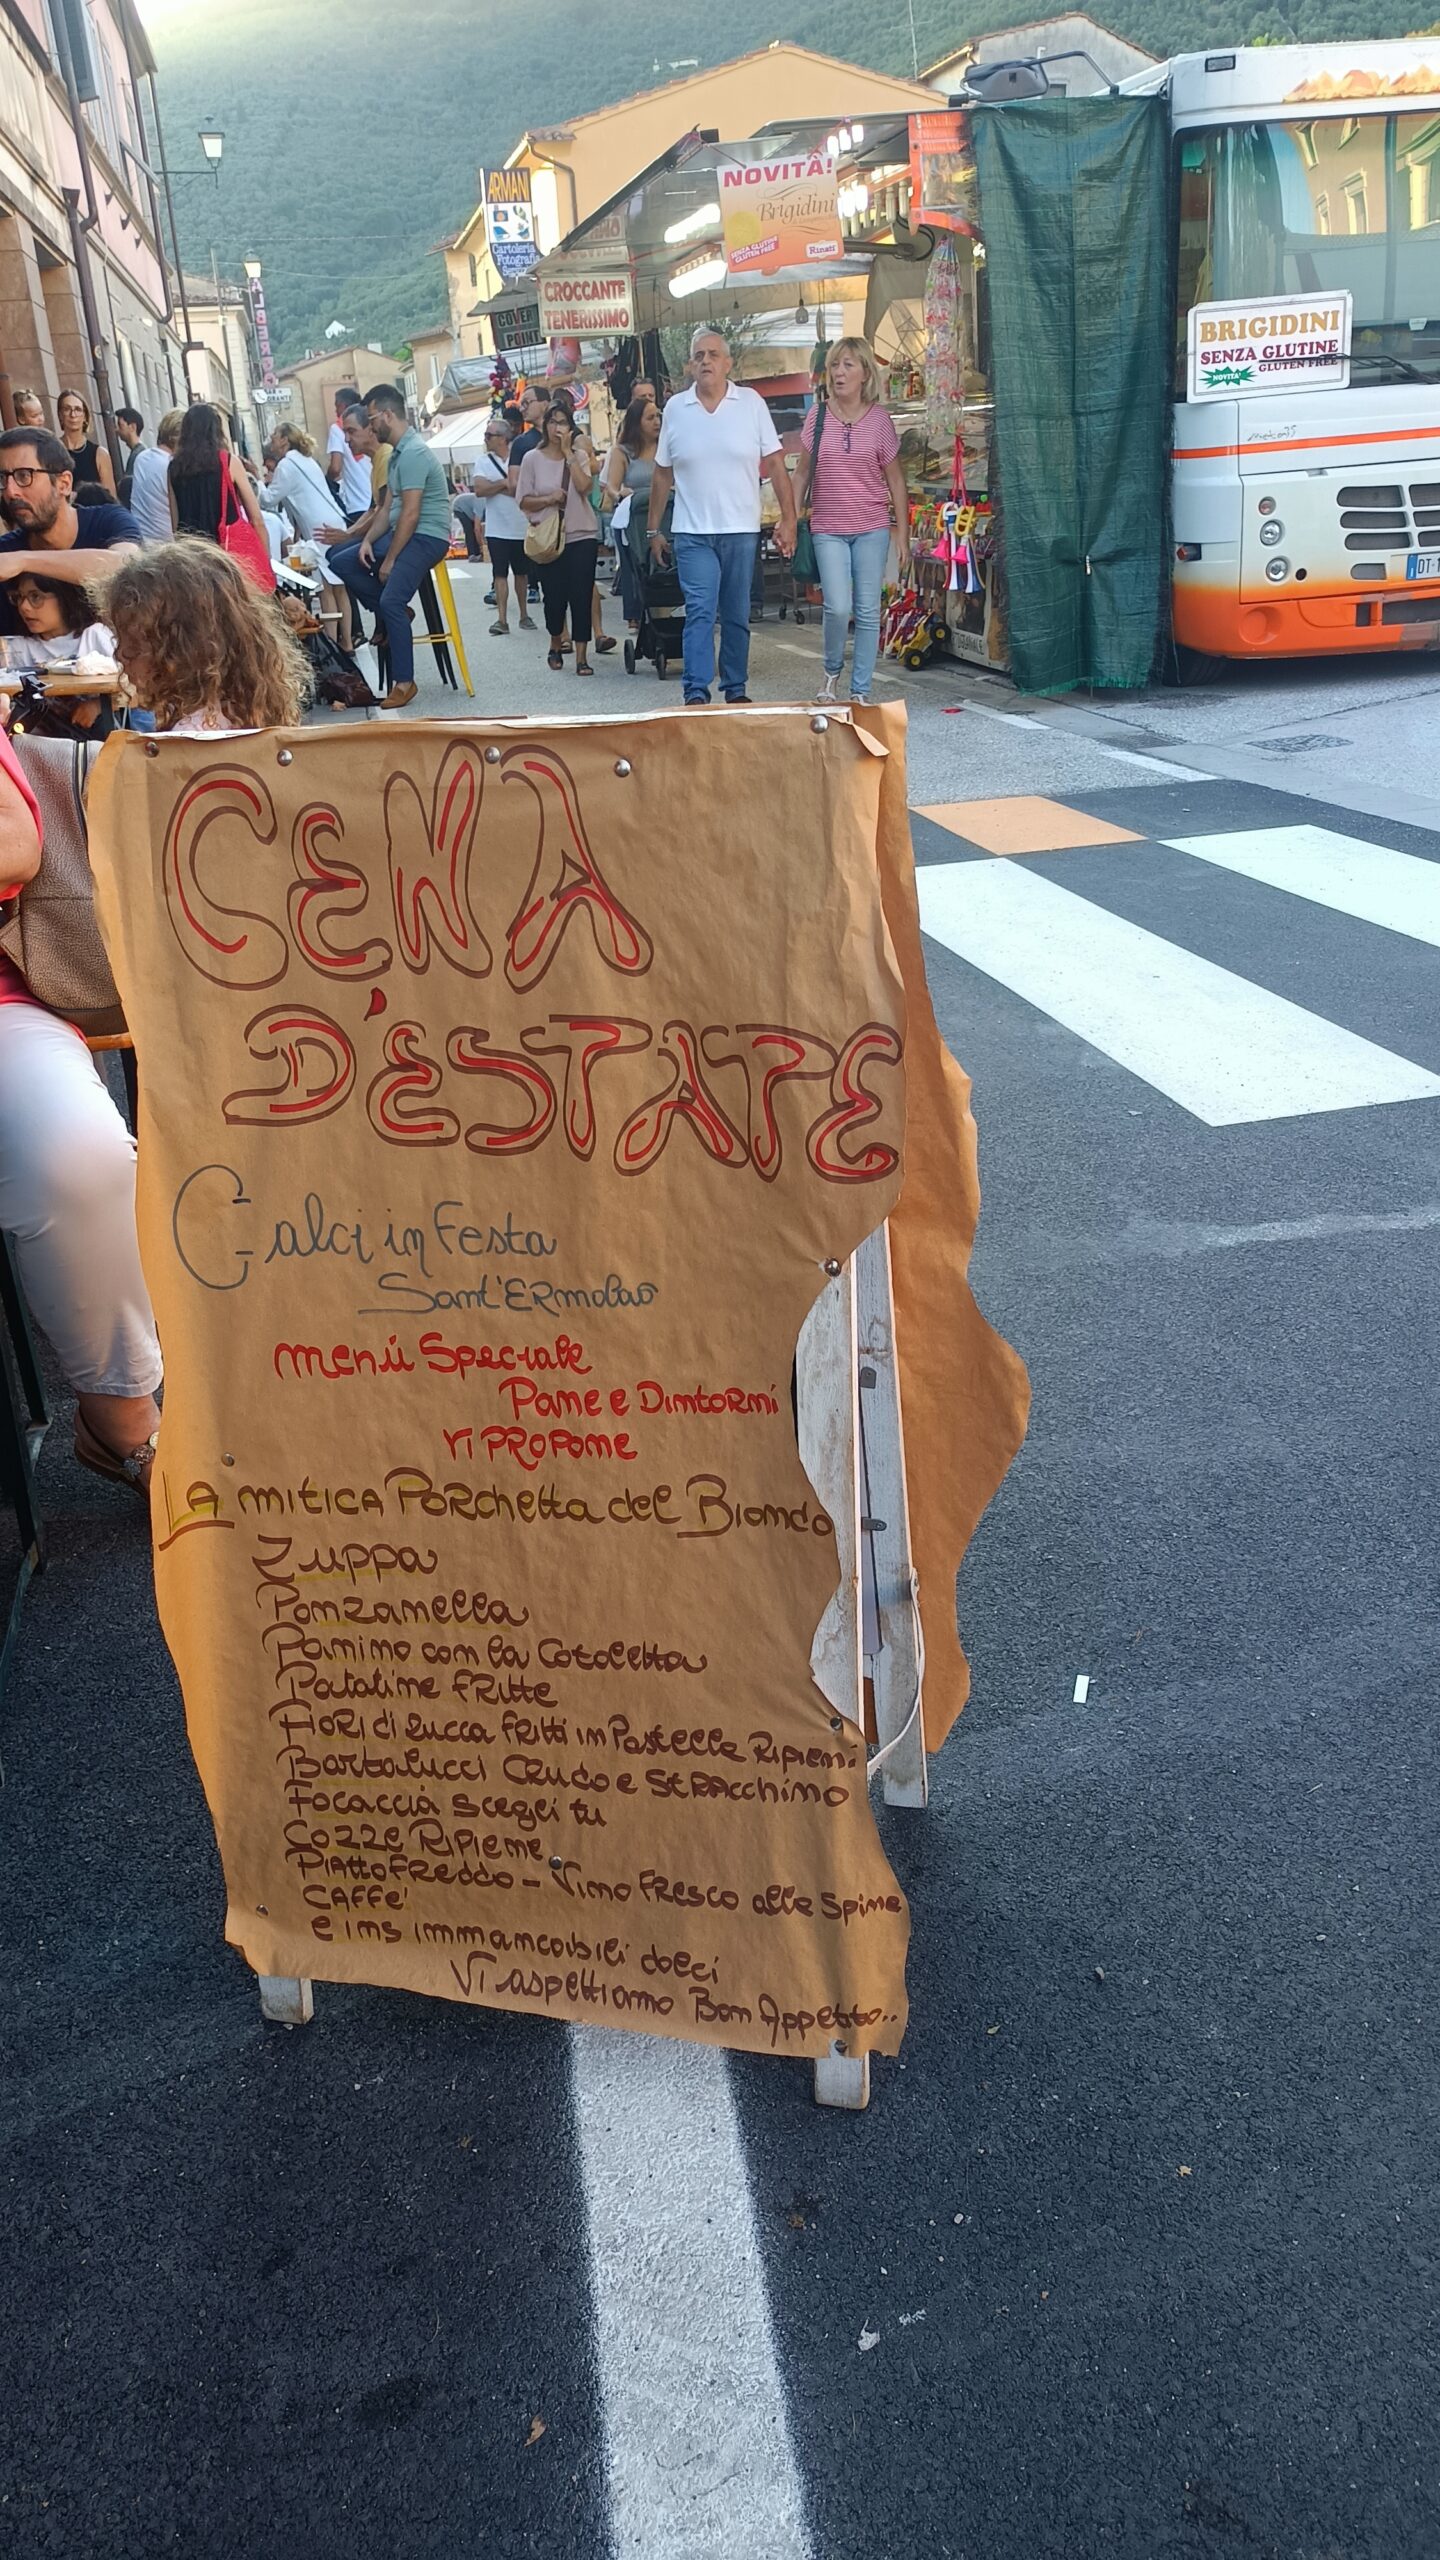 ARMANI
Cartoleria
Fotografia
NOVITÀ!
Brigidini
SENZA GLUTINE
GLUTEN FREE
Rinati
CROCCANTE
TENERISSIMO
COVER
POINT
ALBERGO
BRIGIDINI
SENZA GLUTINE
NOVITA'
GLUTEN FREE
DT
CENA
D'ESTATE
Calci in Festa
Sant'Ermolao
Menú Speciale
Pane e Dintorni
Vi PROPONE
LA MITICA PORChetta del Biondo
Zuppa
Panzanella
Panino con la Cotoletta
Patatine fritte
Fiori di zucca fritti in Pastella Ripieni
Bartolucci Crudo e Stracchino
Focaccia scegli tu
Cozze Ripiene
Piatto Freddo - Vino fresco alla Spina
CAFFE'
e ins immancabili dolci
Vi aspettiamo Bon Appetito..